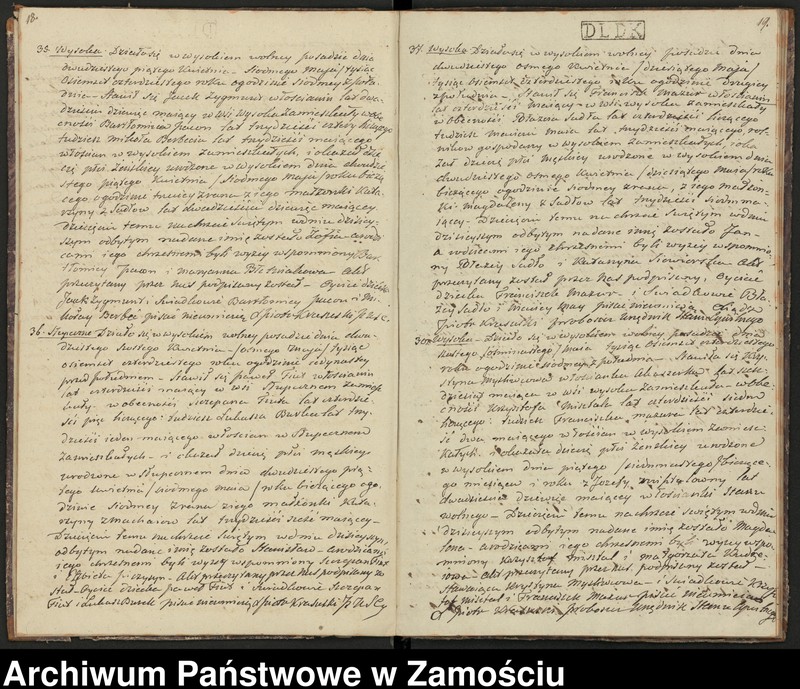 18.
35. Wysokie. Działo się w wysokiem wolney posadzie dnia
dwudziestego piątego Kwietnia – Siodmego Maja / tysiąc
osiemset czterdziestego roku o godzinie siodmey z połu
dnia – Stawił się Jacek Zygmunt włościanin lat dwa-
dzieścia dziewięć maiący w wsi Wysokie zamieszkały w obe-
cności Bartłomieja lat trzydzieści cztery liczącego
tudzież Mikołaia Berbecia lat trzydzieści maiącego
włościan w wysokiem zamieszkałych, i okazał dzie
cię płci żeńskiey urodzone w wysokiem dnia dwudzie
stego piątego Kwietnia / Siodmego maja / roku bieżą
cego o godzinie z rana z jego małżonki Kata
rzyny z Sudłow lat dwadzieścia dziewięć maiącey
dziecięciu temu na chrzcie świętym w dniu dzisiey-
szym odbytym nadane imię zostało Zofia a rodzi
cami iego chrzestnemi byli wyżej wspomniony Bar
tłomiey i Maryanna Akt
przeczytany przez nas podpisany został – Oyciec dziecka
Jacek Zygmunt, Swiadkowie Bartłomiey i Mi
kołay Berbeć pisać nieumieią
36. Słupeczno Działo się w wysokiem wolney posadzie dnia dwu
dziestego szóstego Kwietnia – / osmego Maja / tysiąc
osiemset czterdziestego roku o godzinie
przed południem – Stawił się Paweł Fiut włościanin
lat czterdzieści maiący w wsi zamiesz
kały – w obecności Szczepana Fiuta lat czterdzie
ści pięć liczącego: tudzież Łukasza lat trzy
dzieści ieden maiącego włościan w
zamieszkałych – i okazał dziecię płci męzkiey
urodzone w dnia dwudziestego pią
tego Kwietnia / siodmego maia / roku bieżącego o go
dzinie Siodmey z rana z iego małżonki Kata
rzyny lat trzydzieści sześć maiącey –
Dziecięciu temu na chrzcie świętym w dniu dzisieyszym
odbytym nadane imię zostało Stanisław – a rodzicami
iego chrzestnemi byli wyżej wspomniony Szczepan Fiut
i Akt przeczytany przez nas podpisany zo
stał – Oyciec dziecka Paweł Fiut i Swiadkowie Szczepan
Fiut i Łukasz pisać nieumieią
DLDK
19.
37. Wysokie Działo się w wysokiem wolney posadzie dnia
dwudziestego osmego Kwietnia / dziesiątego Maja /
tysiąc osiemset czterdziestego roku o godzinie drugiey
z południa – Stawił się Franciszek Mazur włościanin
lat czterdzieści maiący – w wsi Wysokie zamieszkały
w obecności Błażeia Sudła lat czterdzieści liczącego
tudzież Macieia lat trzydzieści maiącego, rol
ników gospodarzy w wysokiem zamieszkałych, i oka
zał dziecię płci męskiey urodzone w wysokiem dnia
dwudziestego osmego Kwietnia / dziesiątego Maia / roku
bieżącego o godzinie siodmey z rana, z jego małżon
ki Magdaleny z Sudłow lat trzydzieści siedm ma-
iącey – Dziecięciu temu na chrzcie świętym w dniu
dzisieyszym odbytym nadane imię zostało Jan –
a rodzicami jego chrzestnemi byli wyżey wspomnio
ny Błażey Sudło i Katarzyna Akt
przeczytany został przez nas podpisany, Oyciec
dziecka Franciszek Mazur – i Swiadkowie Bła
żey Sudło i Maciey pisać nieumieią – Xiądz
Piotr Kraszuski proboszcz Urzędnik Stanu Cywilnego
38. Wysokie – Działo się w wysokiem wolney posadzie dnia
szóstego / ośmnastego / maia tysiąc osiemset czterdziestego
roku o godzinie siodmey z południa – Stawiła się Kry-
styna Myśliwcowa włościanka Akuszerka lat sześć
dziesiąt maiąca w wsi wysokie zamieszkała – w obe
cności Krzysztofa Misztala lat czterdzieści siedm
liczącego: tudzież Franciszka Mazura lat czterdzie
ści dwa maiącego włościan w wysokiem zamiesz-
kałych. i okazała dziecię płci żeńskiey urodzone
w wysokiem dnia piątego / siedmnastego / bieżące
go miesiąca i roku z Jozefy lat
dwadzieścia dziewięć maiącey włościanki Stanu
wolnego – Dziecięciu temu na chrzcie świętym w dniu
dzisieyszym odbytym nadane imię zostało Magda
lena – a rodzicami iego chrzestnemi byli wyżey wspo
mniony Krzysztof Misztal i Małgorzata
Akt przeczytany przez nas podpisany został –
Stawaiąca Krystyna Myśliwcowa – i Swiadkowie Krzysz
tof Misztal i Franciszek Mazur pisać nieumieią
X Piotr Kraszuski proboszcz Urzędnik Stanu Cywilnego
Archiwum Państwowe w Zamościu